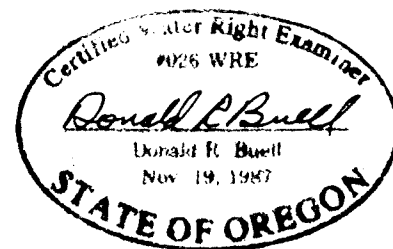 Certified Water Right Examiner
#026 WRE
Donald R Buell
Donald R. Buell
Nov. 19, 1987
STATE OF OREGON